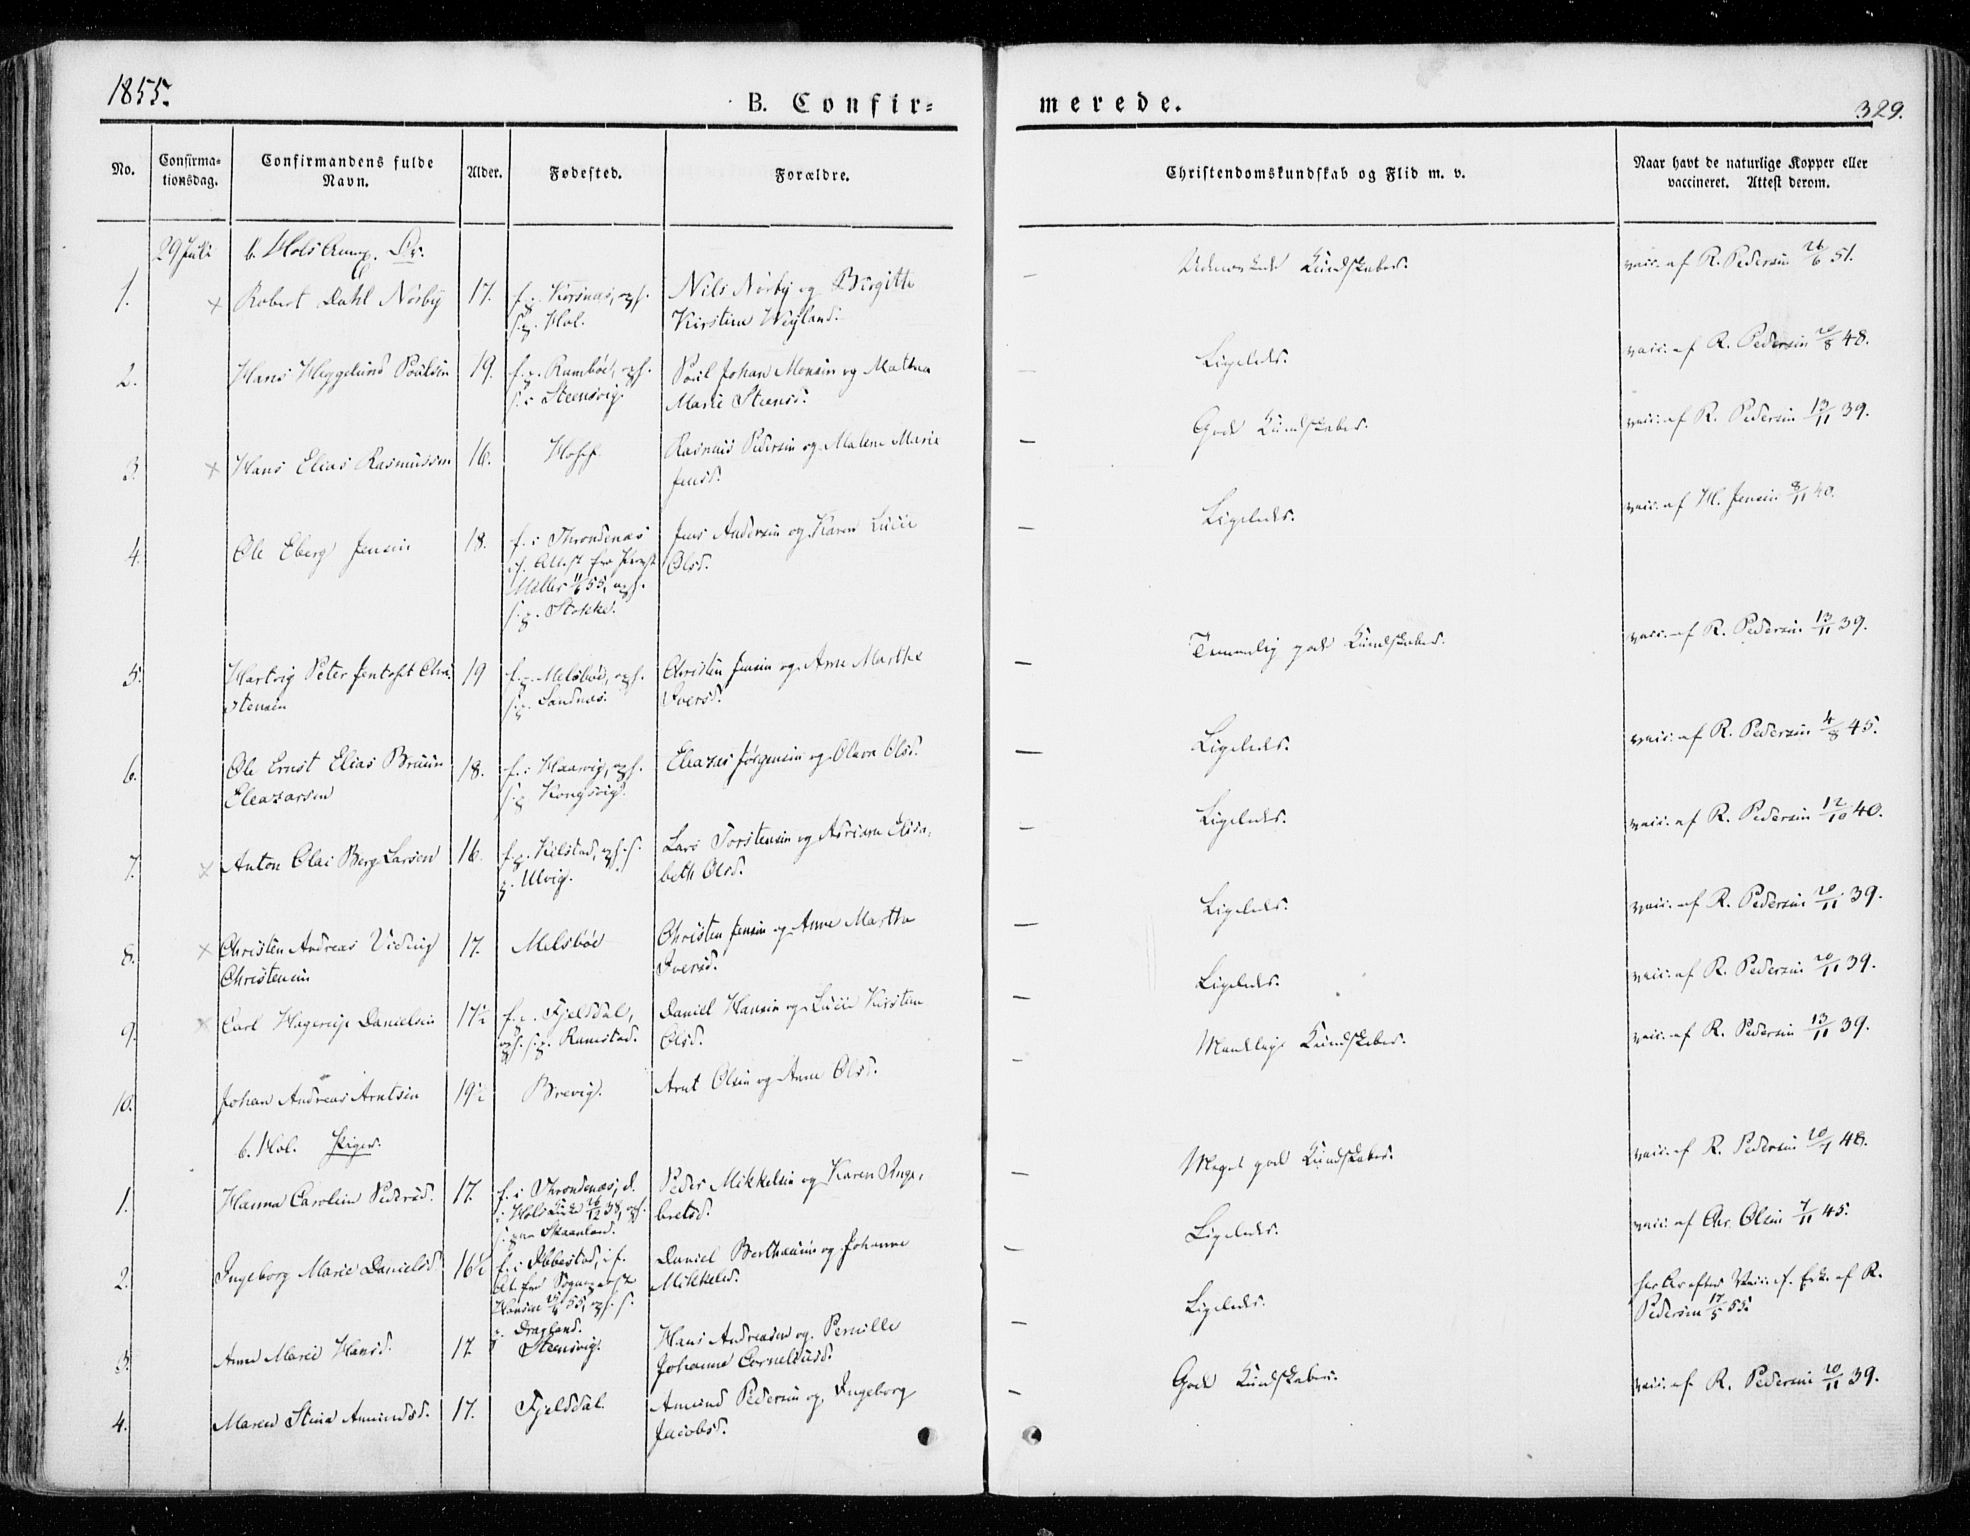 1855.
B. Confir-
merede.
329.
No.
Confirma-
tionsdag.
Confirmandens fulde
Navn.
Alder.
Fødested.
Forældre.
Christendomskundskab og Flid m. v.
Naar havt de naturlige Kopper eller
vaccineret. Attest derom.
29 Juli
1. × Robert Dahl Nørby 17. Nils Nørby og Birgitte
s. p. Hol. Kirstine
Kundskaber. vacc. af R. Pedersen 26/6 51.
2. Hans Heggelund Poulsen 19. Poul Johan Monsen og Malena
s. i Steensvig. Marie Steensd.
Ligeledes. vacc. af R. Pedersen 20/8 48.
3. × Hans Elias Rasmussen 16. Rasmus Pedersen og Malene Marie
Jensd.
God Kundskaber. vacc. af R. Pedersen 13/11 39.
4. Ole Eberg Jensen 18. f. i Throndenæs Jens Andersen og Karen Lucie
Olsd.
Møller 11/6 55, opf.
s. p. Stokke.
Ligeledes. vacc. af H. Jensen 8/11 40.
5. Hartvig Peter Jentoft Chri- 19 f. p. Melsbøe, opf. Christen Jensen og Anne Martha
stensen s. p. Sandnæs. Iversd.
Temmelig god Kundskaber. vacc. af R. Pedersen 13/11 39.
6. Ole Ernst Elias Bruun 18. f. i Haarvig, opf. Eleazar Jørgensen og Olava Olsd.
Eleazarsen s. p. Kongsvig.
Ligeledes. vacc. af R. Pedersen 4/8 45.
7. × Anton Olai Berg Larsen 16. f. p. Kilstad, opf. s. Lars Torstensen og Adriane Elisa-
p. Ulvig. beth Olsd.
Ligeledes. vacc. af R. Pedersen 12/10 40.
8. × Christen Andreas Viding 17. Melsbøe Christen Jensen og Anne Martha
Christensen Iversd.
Ligeledes. vacc. af R. Pedersen 20/11 39.
9. × Carl Hagerup Danielsen 17½ f. i Fjelddal, Daniel Hansen og Lucie Kirstine
opf. s. p. Ramstad. Olsd.
Ligeledes. vacc. af R. Pedersen 20/11 39.
10. Johan Andreas Arntsen 19½ Brevig. Arnt Olsen og Anne Olsd.
Maadelige Kundskaber. vacc. af R. Pedersen 13/11 39.
b. Hol. Piger.
1. Hanna Carolein Pedersd. 17. f. i Throndenæs, d. Peder Mikkelsen og Karen Inge-
i Hols Kirke 26/12 38, opf. bretsd.
Skaanland.
Meget god Kundskaber. vacc. af R. Pedersen 20/7 48.
2. Ingeborg Marie Danielsd. 16½ f. i Ibbestad, Daniel Berthausen og Johanne
Mikkelsd.
Hansen 55, opf. s.
p. Dragland.
Ligeledes. vacc. af Chr. Olsen 7/11 45.
3. Anne Marie Hansd. 17. Steensvig. Hans Andreasen og Pernille
Johanne Corneliusd.
Ligeledes. af R.
Pedersen 17/5 55.
4. Maren Stina Amundsd. 17. Fjelddal. Amund Pedersen og Ingeborg
Jacobsd.
God Kundskaber. vacc. af R. Pedersen 20/11 39.